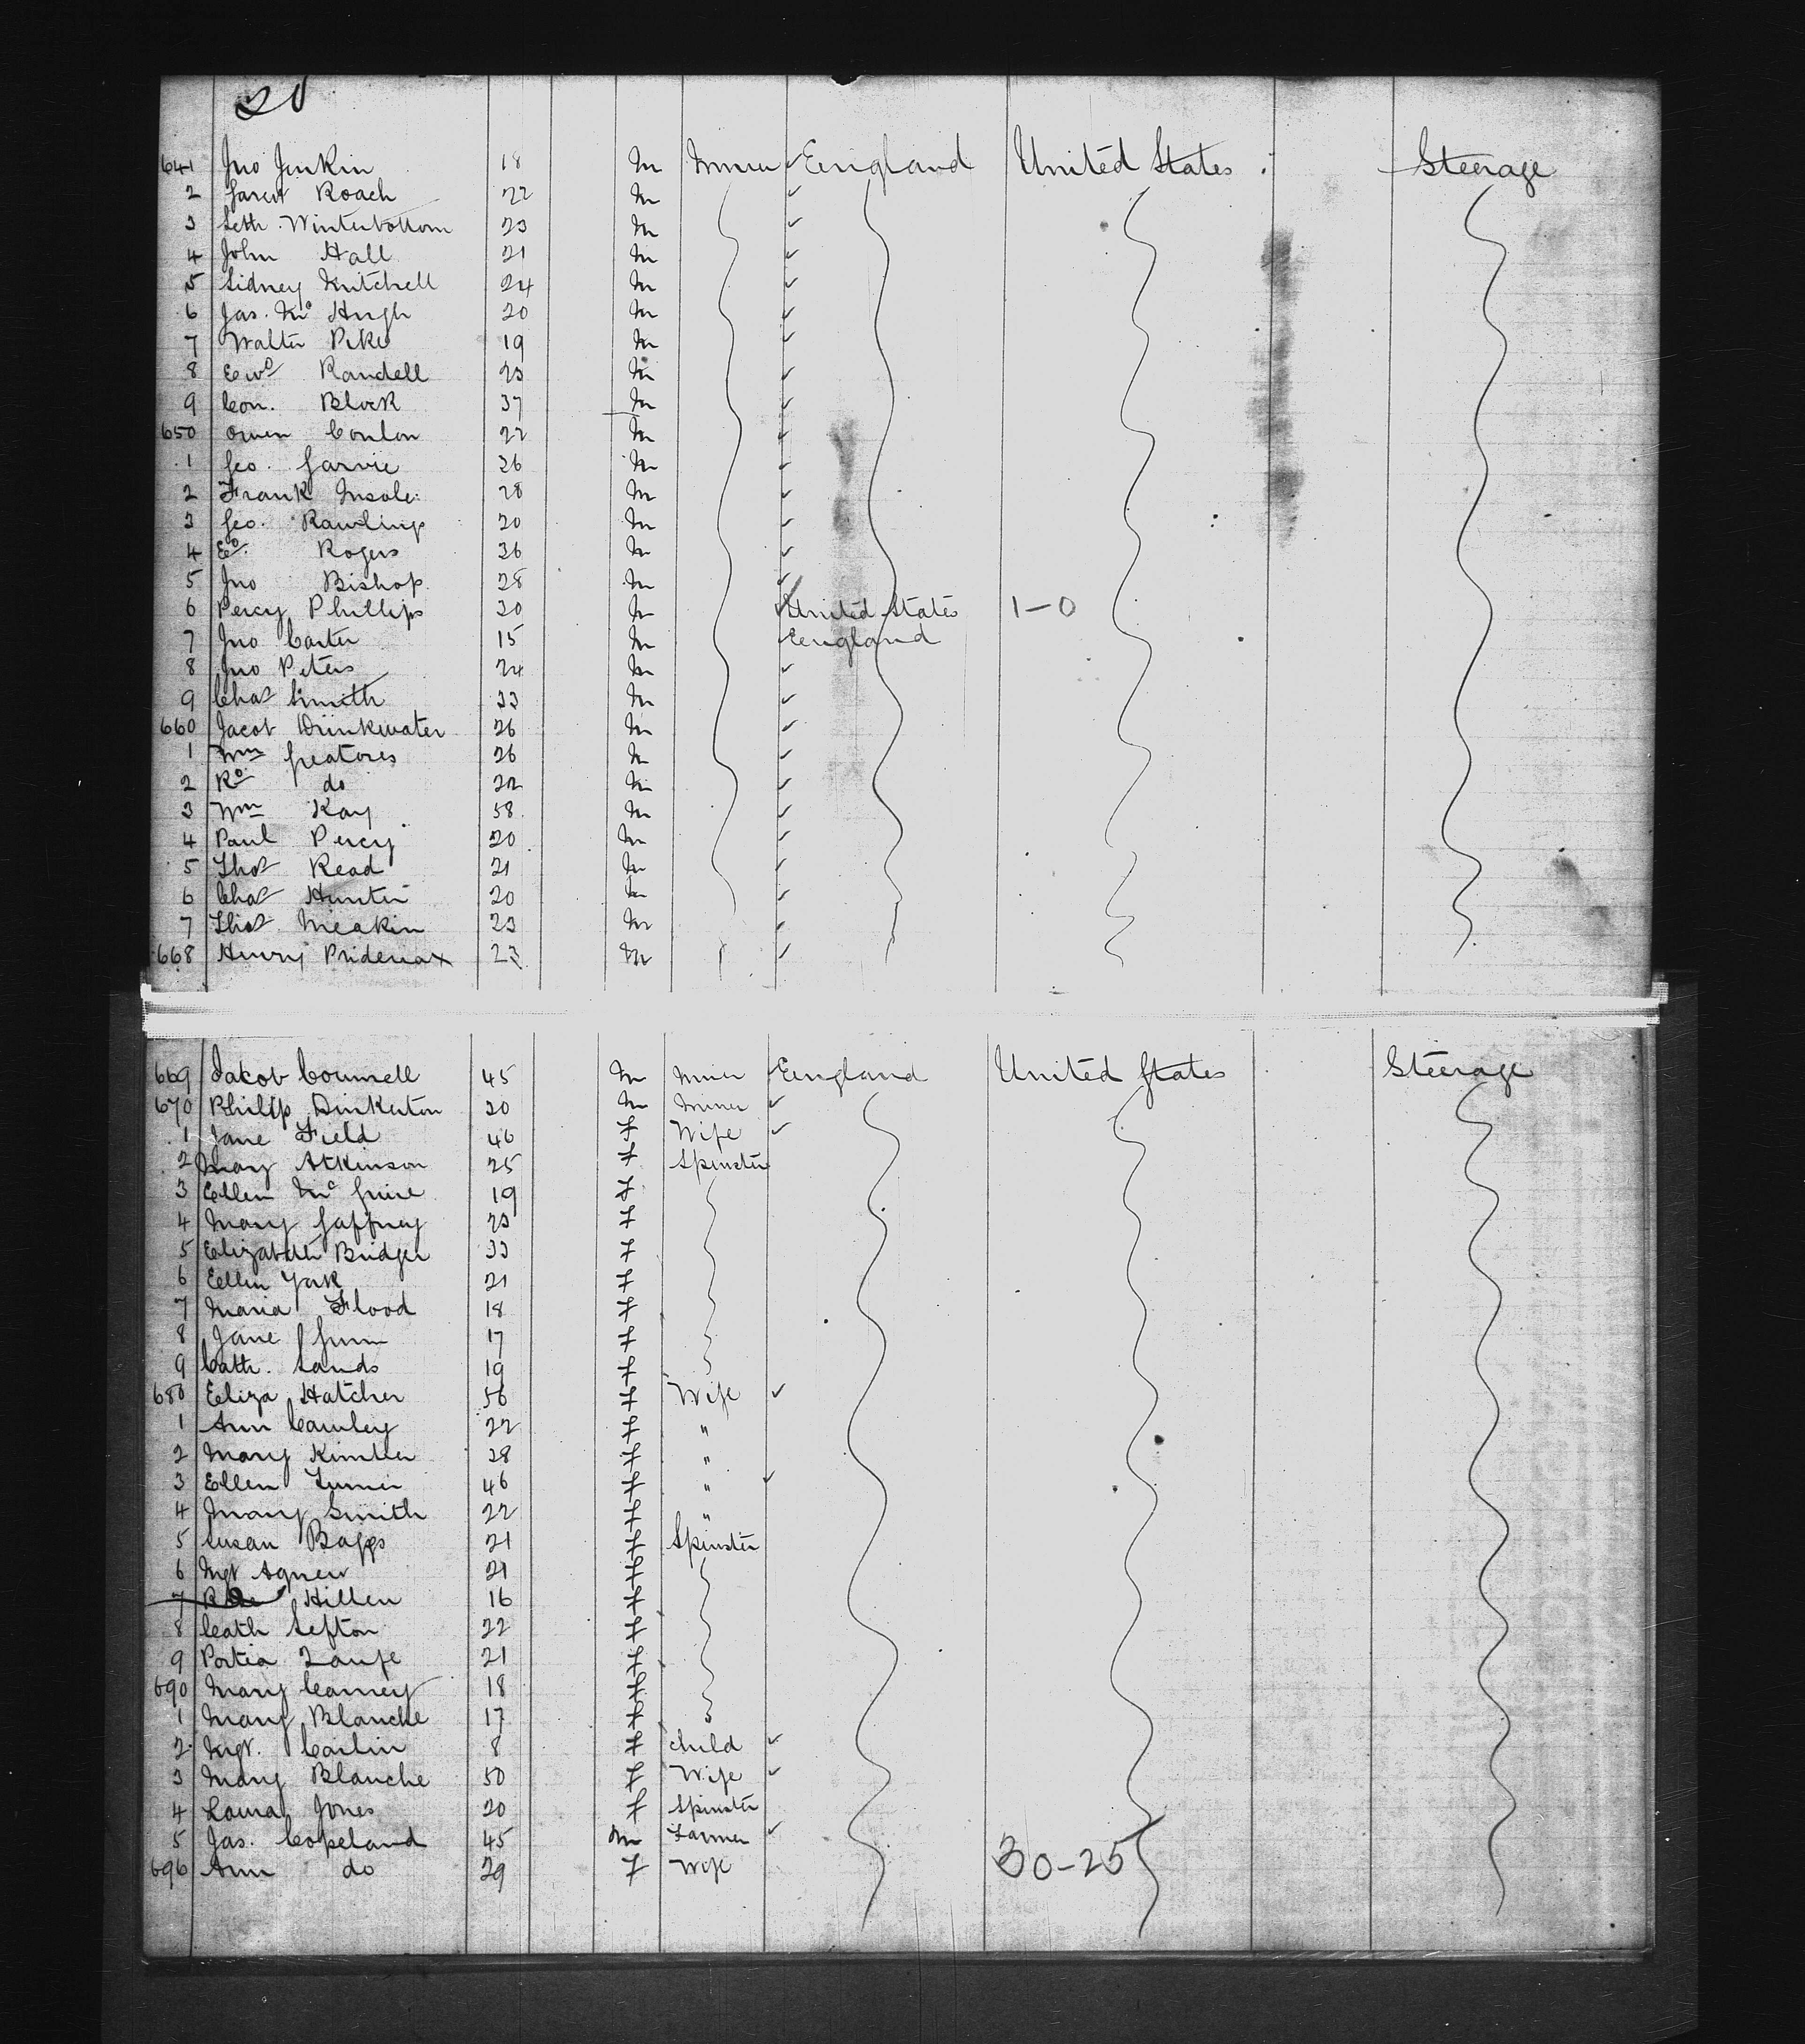 20
641 Jno Jenkin 18 M Miner ✓ England United States Steerage
2 Garrett Roach 22 M ✓
3 Seth Winterbottom 23 M ✓
4 John Hall 21 M ✓
5 Sidney Mitchell 24 M ✓
6 Jas. Mc Hugh 20 M ✓
7 Walter Pike 19 M ✓
8 Ewd Randell 23 M ✓
9 Con. Block 37 M ✓
650 Owen Conlon 22 M ✓
1 Geo. Garvie 26 M ✓
2 Frank Insole 28 M ✓
3 Geo. Rawlings 20 M ✓
4 Ed Rogers 36 M ✓
5 Jno Bishop 28 M ✓
6 Percy Phillips 30 M ✓ United States 1-0
7 Jno Carter 15 M England
8 Jno Peters 24 M ✓
9 Chas Smith 33 M ✓
660 Jacob Drinkwater 26 M ✓
1 Wm Greatores 26 M ✓
2 Rd do 32 M ✓
3 Wm Kay 58 M ✓
4 Paul Percy 20 M ✓
5 Thos Read 21 M ✓
6 Chas Hunter 20 M ✓
7 Thos Meakin 23 M ✓
668 Henry Prideaux 23 M ✓
669 Jacob Counsell 45 M Miner England United States Steerage
670 Philip Dinkerton 20 M Miner ✓
1 Jane Field 46 F Wife ✓
2 Mary Atkinson 25 F Spinster
3 Ellen Mc Guire 19 F
4 Mary Gaffney 23 F
5 Elizabeth Bridger 33 F
6 Ellen York 21 F
7 Maria Flood 18 F
8 Jane Gunn 17 F
9 Cath. Sands 19 F
680 Eliza Hatcher 56 F Wife ✓
1 Ann Cawley 22 F "
2 Mary Kimber 28 F "
3 Ellen Turner 46 F " ✓
4 Mary Smith 22 F "
5 Susan Baggs 21 F Spinster
6 Mgt Agnew 21 F
7 Hillen 16 F
8 Cath Sefton 22 F
9 Portia 21 F
690 Mary Carney 18 F
1 Mary Blanche 17 F
2 Mgt. Carlin 8 F child ✓
3 Mary Blanche 50 F Wife ✓
4 Laura Jones 20 F Spinster
5 Jas. Copeland 45 M Farmer ✓
696 Ann do 29 F Wife 30-25